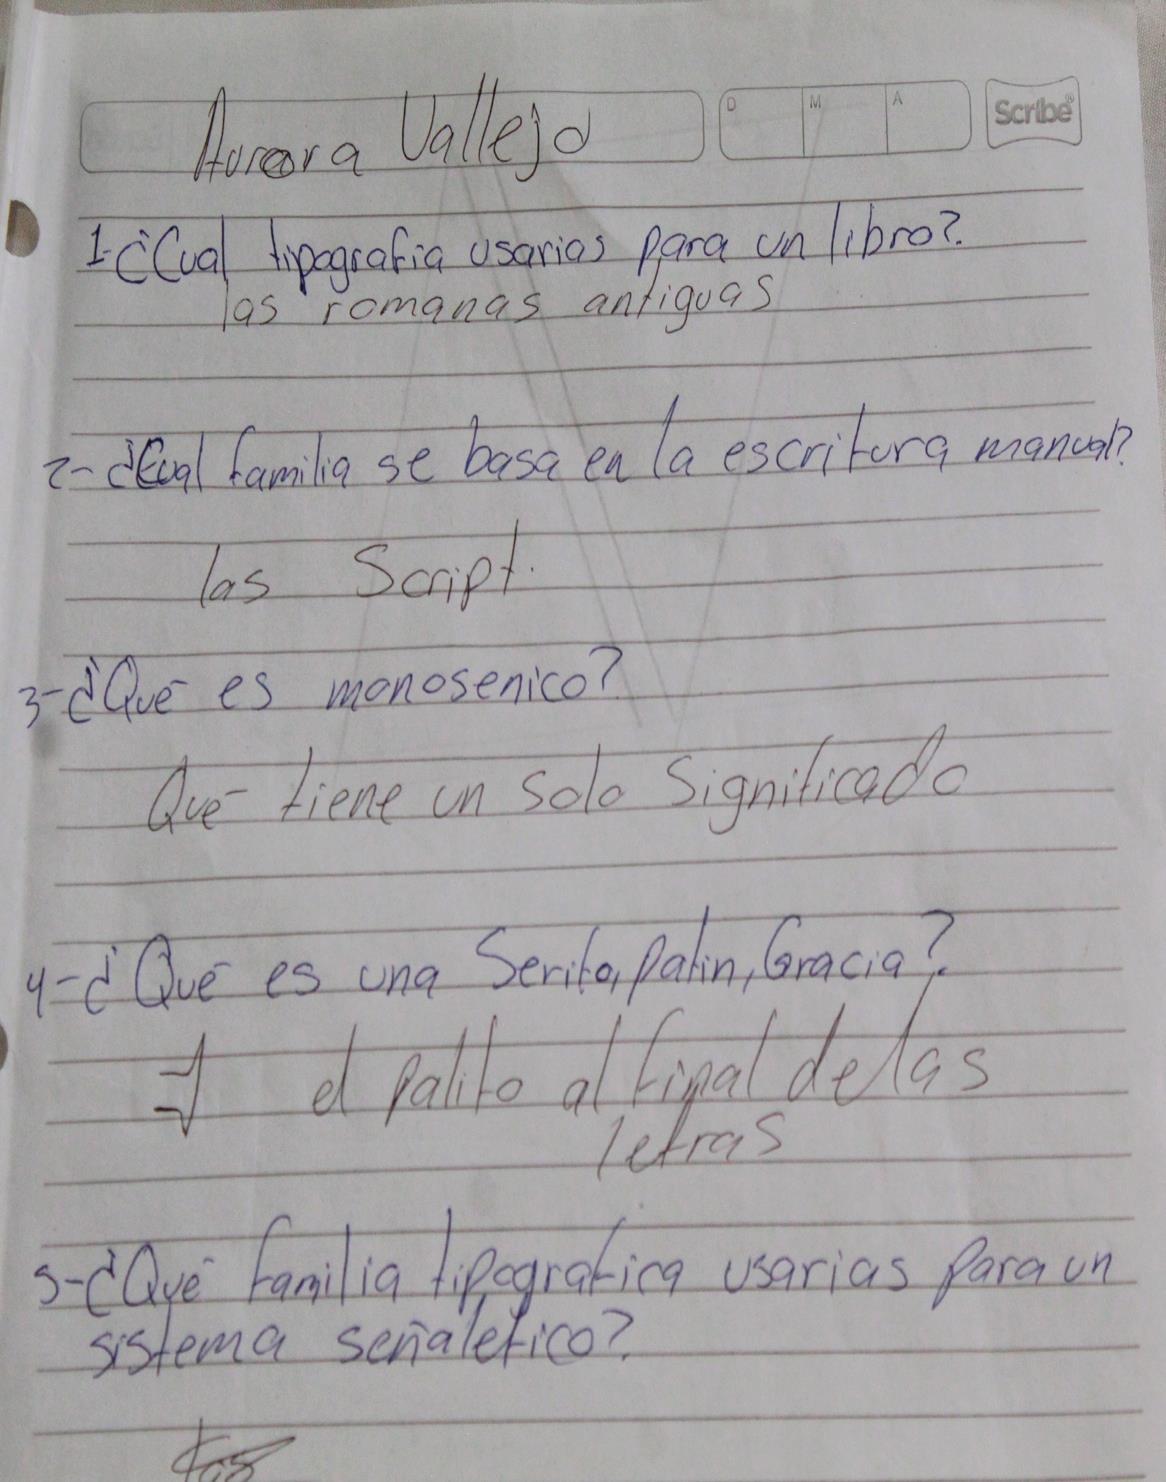 Aurora Vallejo
D M A
Scribe®
1-¿Cual tipografia usarias para un libro?
las romanas antiguas
2-¿Cual familia se basa en la escritura manual?
las Script.
3-¿Qué es monosenico?
Qué tiene un solo significado
4-¿Qué es una Serifa, Patin, Gracia?
el palito al final de las
letras
5-¿Qué familia tipografica usarias para un
sistema señaletico?